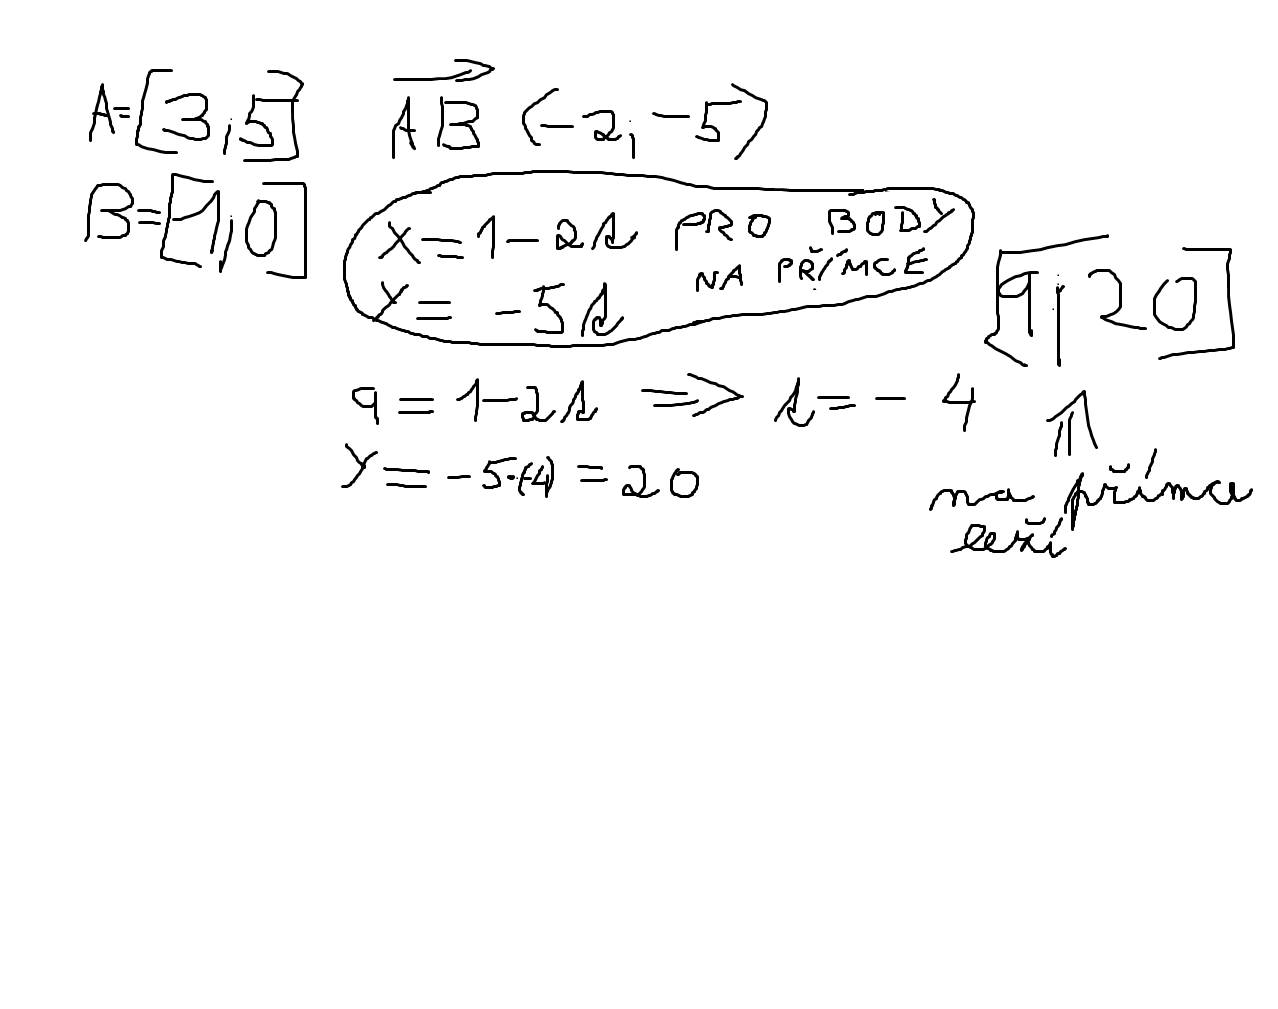 A=[3,5] AB (-2,-5)
B=[1,0]
x=1-2s PRO BODY
NA PŘÍMCE
y= -5s
[9,20]
9=1-2s => s=-4
y=-5·(-4)=20
na přímce
leží